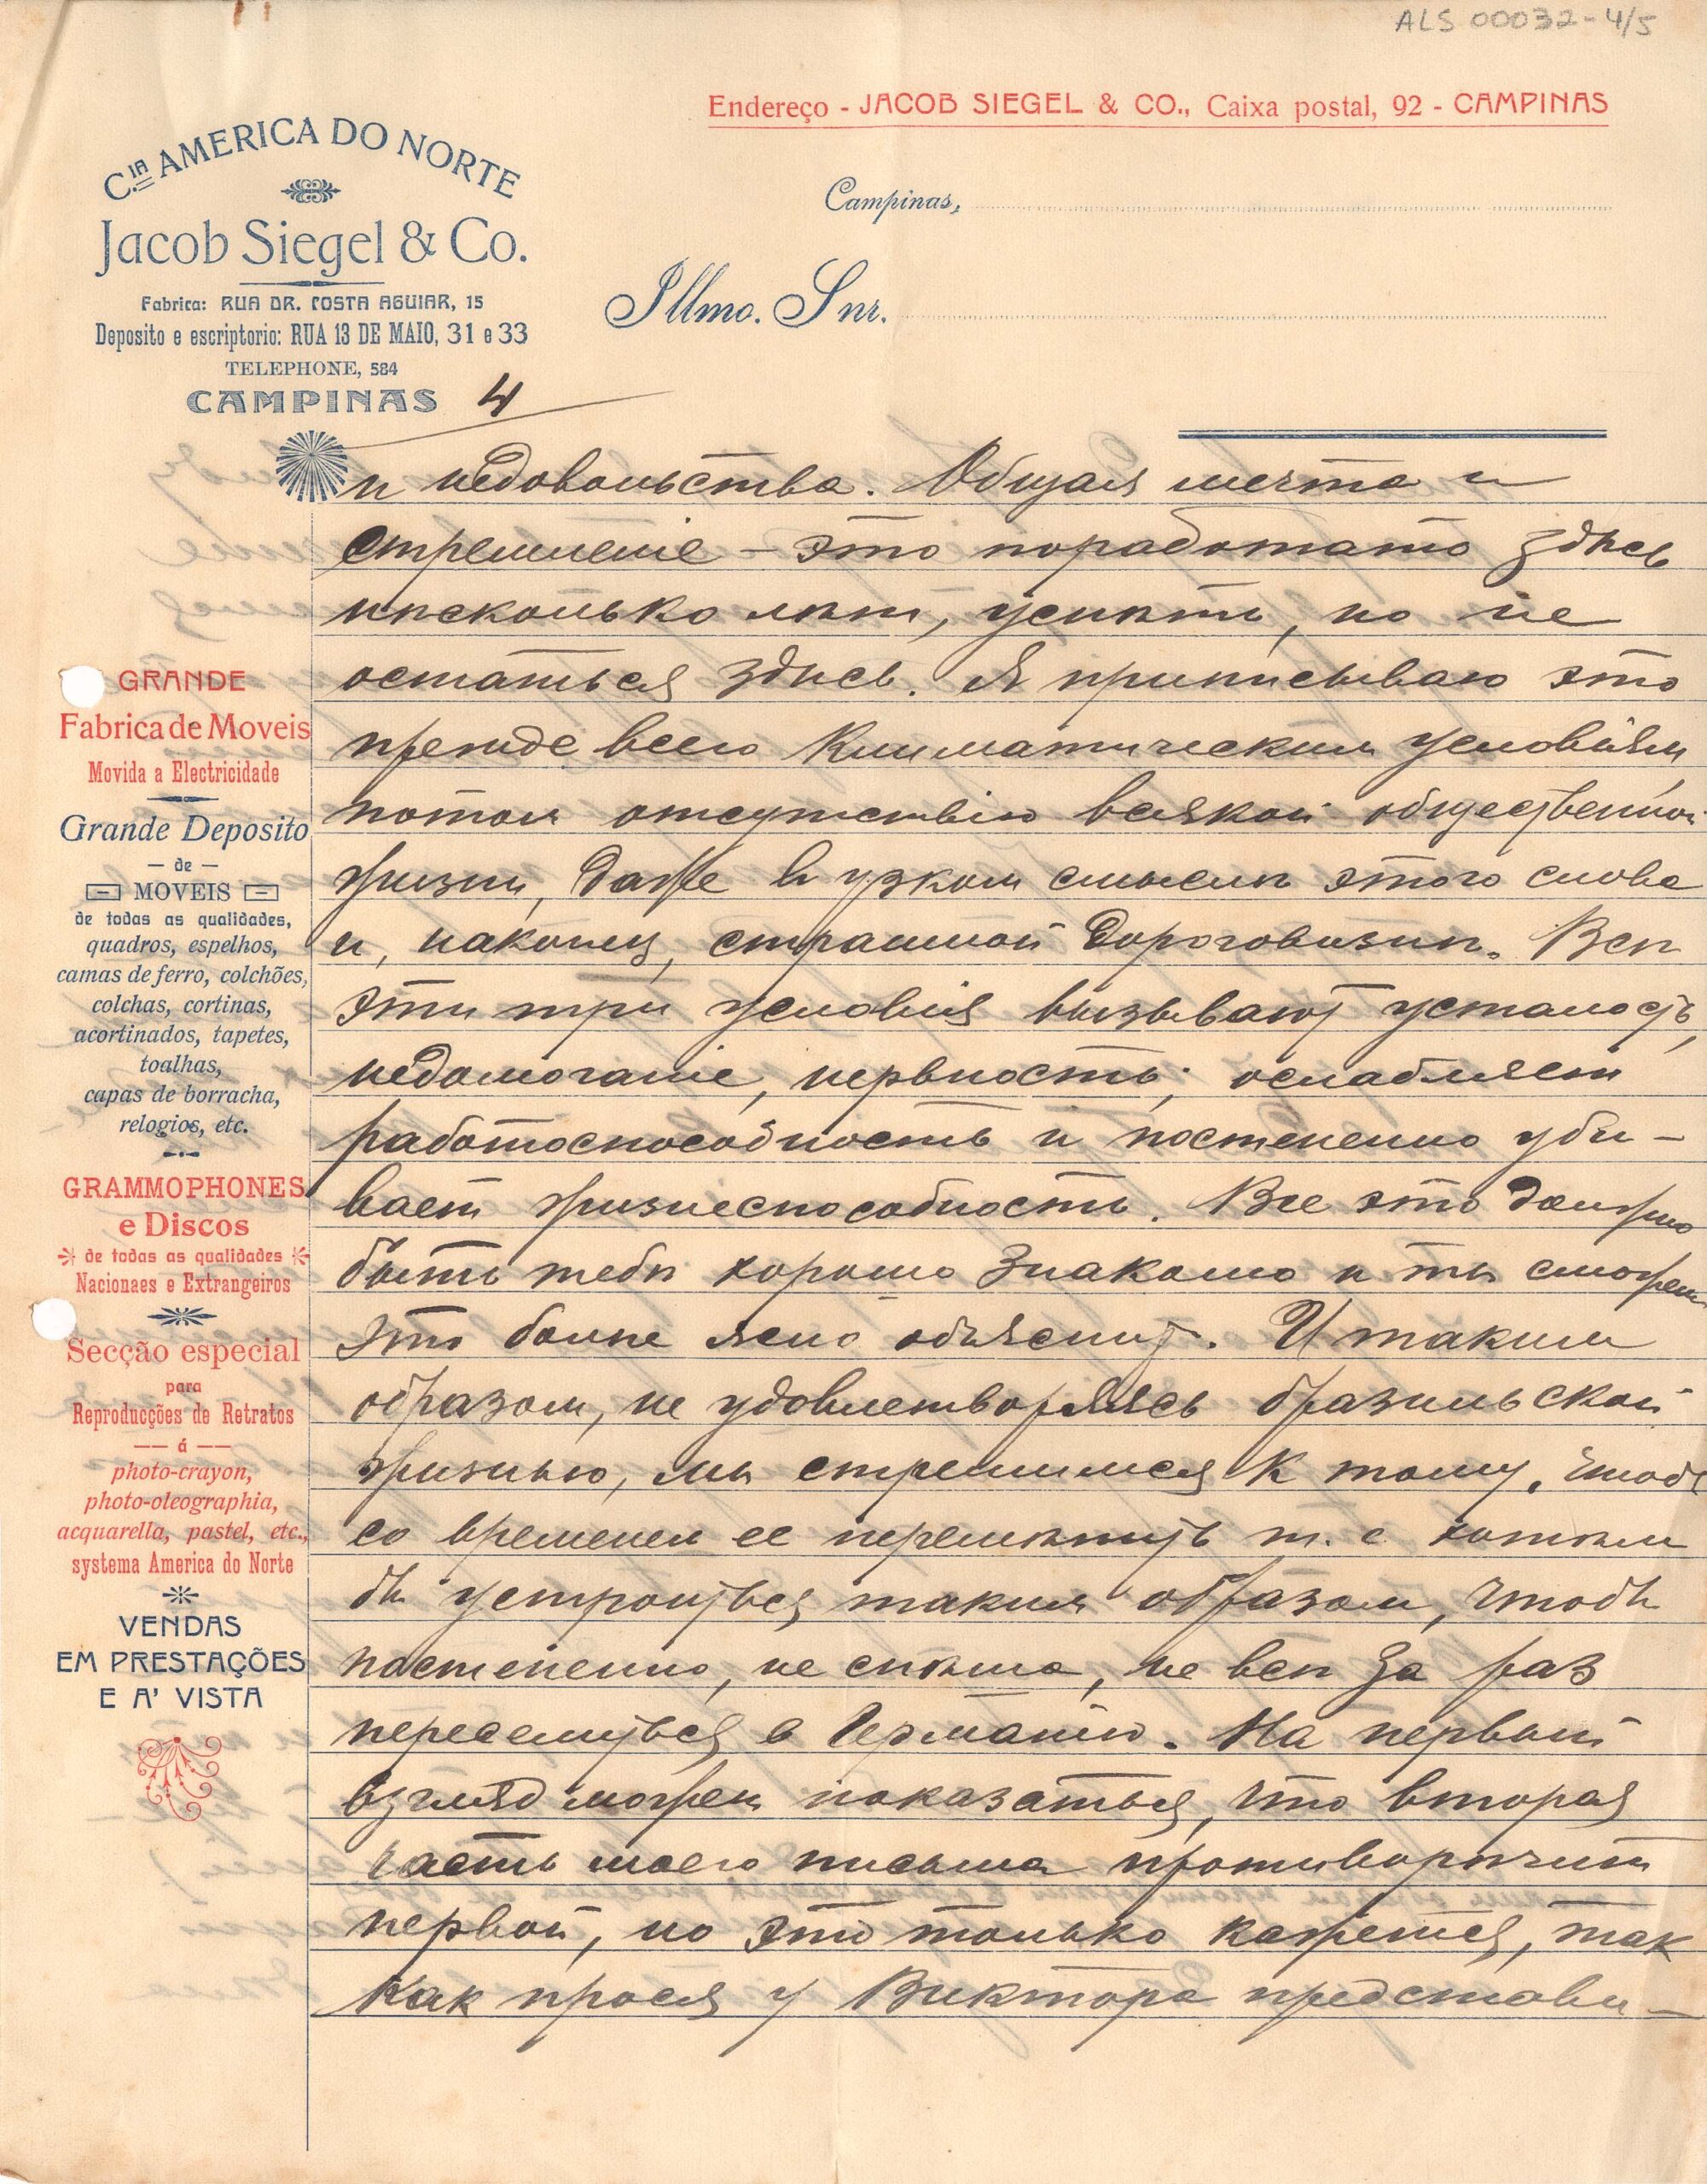 ALS 00032-4/5
Endereço - JACOB SIEGEL & CO., Caixa postal, 92 - CAMPINAS
C.IA AMERICA DO NORTE
Jacob Siegel & Co.
Fabrica: RUA DR. COSTA AGUIAR, 15
Deposito e escriptorio: RUA 13 DE MAIO, 31 e 33
TELEPHONE, 584
CAMPINAS
Campinas,
Illmo. Snr.
4
и недовольства. Общая мечта и
стремленіе – это поработать здѣсь
нѣсколько лѣт, успѣть, но не
остаться здѣсь. Я приписываю это
прежде всего климатическим условіям,
потом отсутствію всякой общественной
жизни, даже в узком смыслѣ этого слова
и, наконец, страшной дороговизнѣ. Всѣ
эти три условія вызывают усталость,
недомоганіе, нервность; ослабляет
работоспособность и постепенно уби-
вает жизнеспособность. Все это должно
быть тебѣ хорошо знакомо и ты сможешь
это болѣе ясно объяснить. И таким
образом, не удовлетворяясь бразильской
жизнью, мы стремимся к тому, чтобы
со временем ее перемѣнить т. е. хотѣли
бы устроиться таким образом, чтобы
постепенно, не спѣша, не всѣ за раз
переселиться в Германію. На первый
взгляд может показаться, что вторая
часть моего письма противорѣчит
первой, но это только кажется, так
как прося у Виктора представи-
GRANDE
Fabrica de Moveis
Movida a Electricidade
Grande Deposito
— de —
MOVEIS
de todas as qualidades,
quadros, espelhos,
camas de ferro, colchões,
colchas, cortinas,
acortinados, tapetes,
toalhas,
capas de borracha,
relogios, etc.
GRAMMOPHONES
e Discos
de todas as qualidades
Nacionaes e Extrangeiros
Secção especial
para
Reproducções de Retratos
— á —
photo-crayon,
photo-oleographia,
acquarella, pastel, etc.,
systema America do Norte
VENDAS
EM PRESTAÇÕES
E A' VISTA